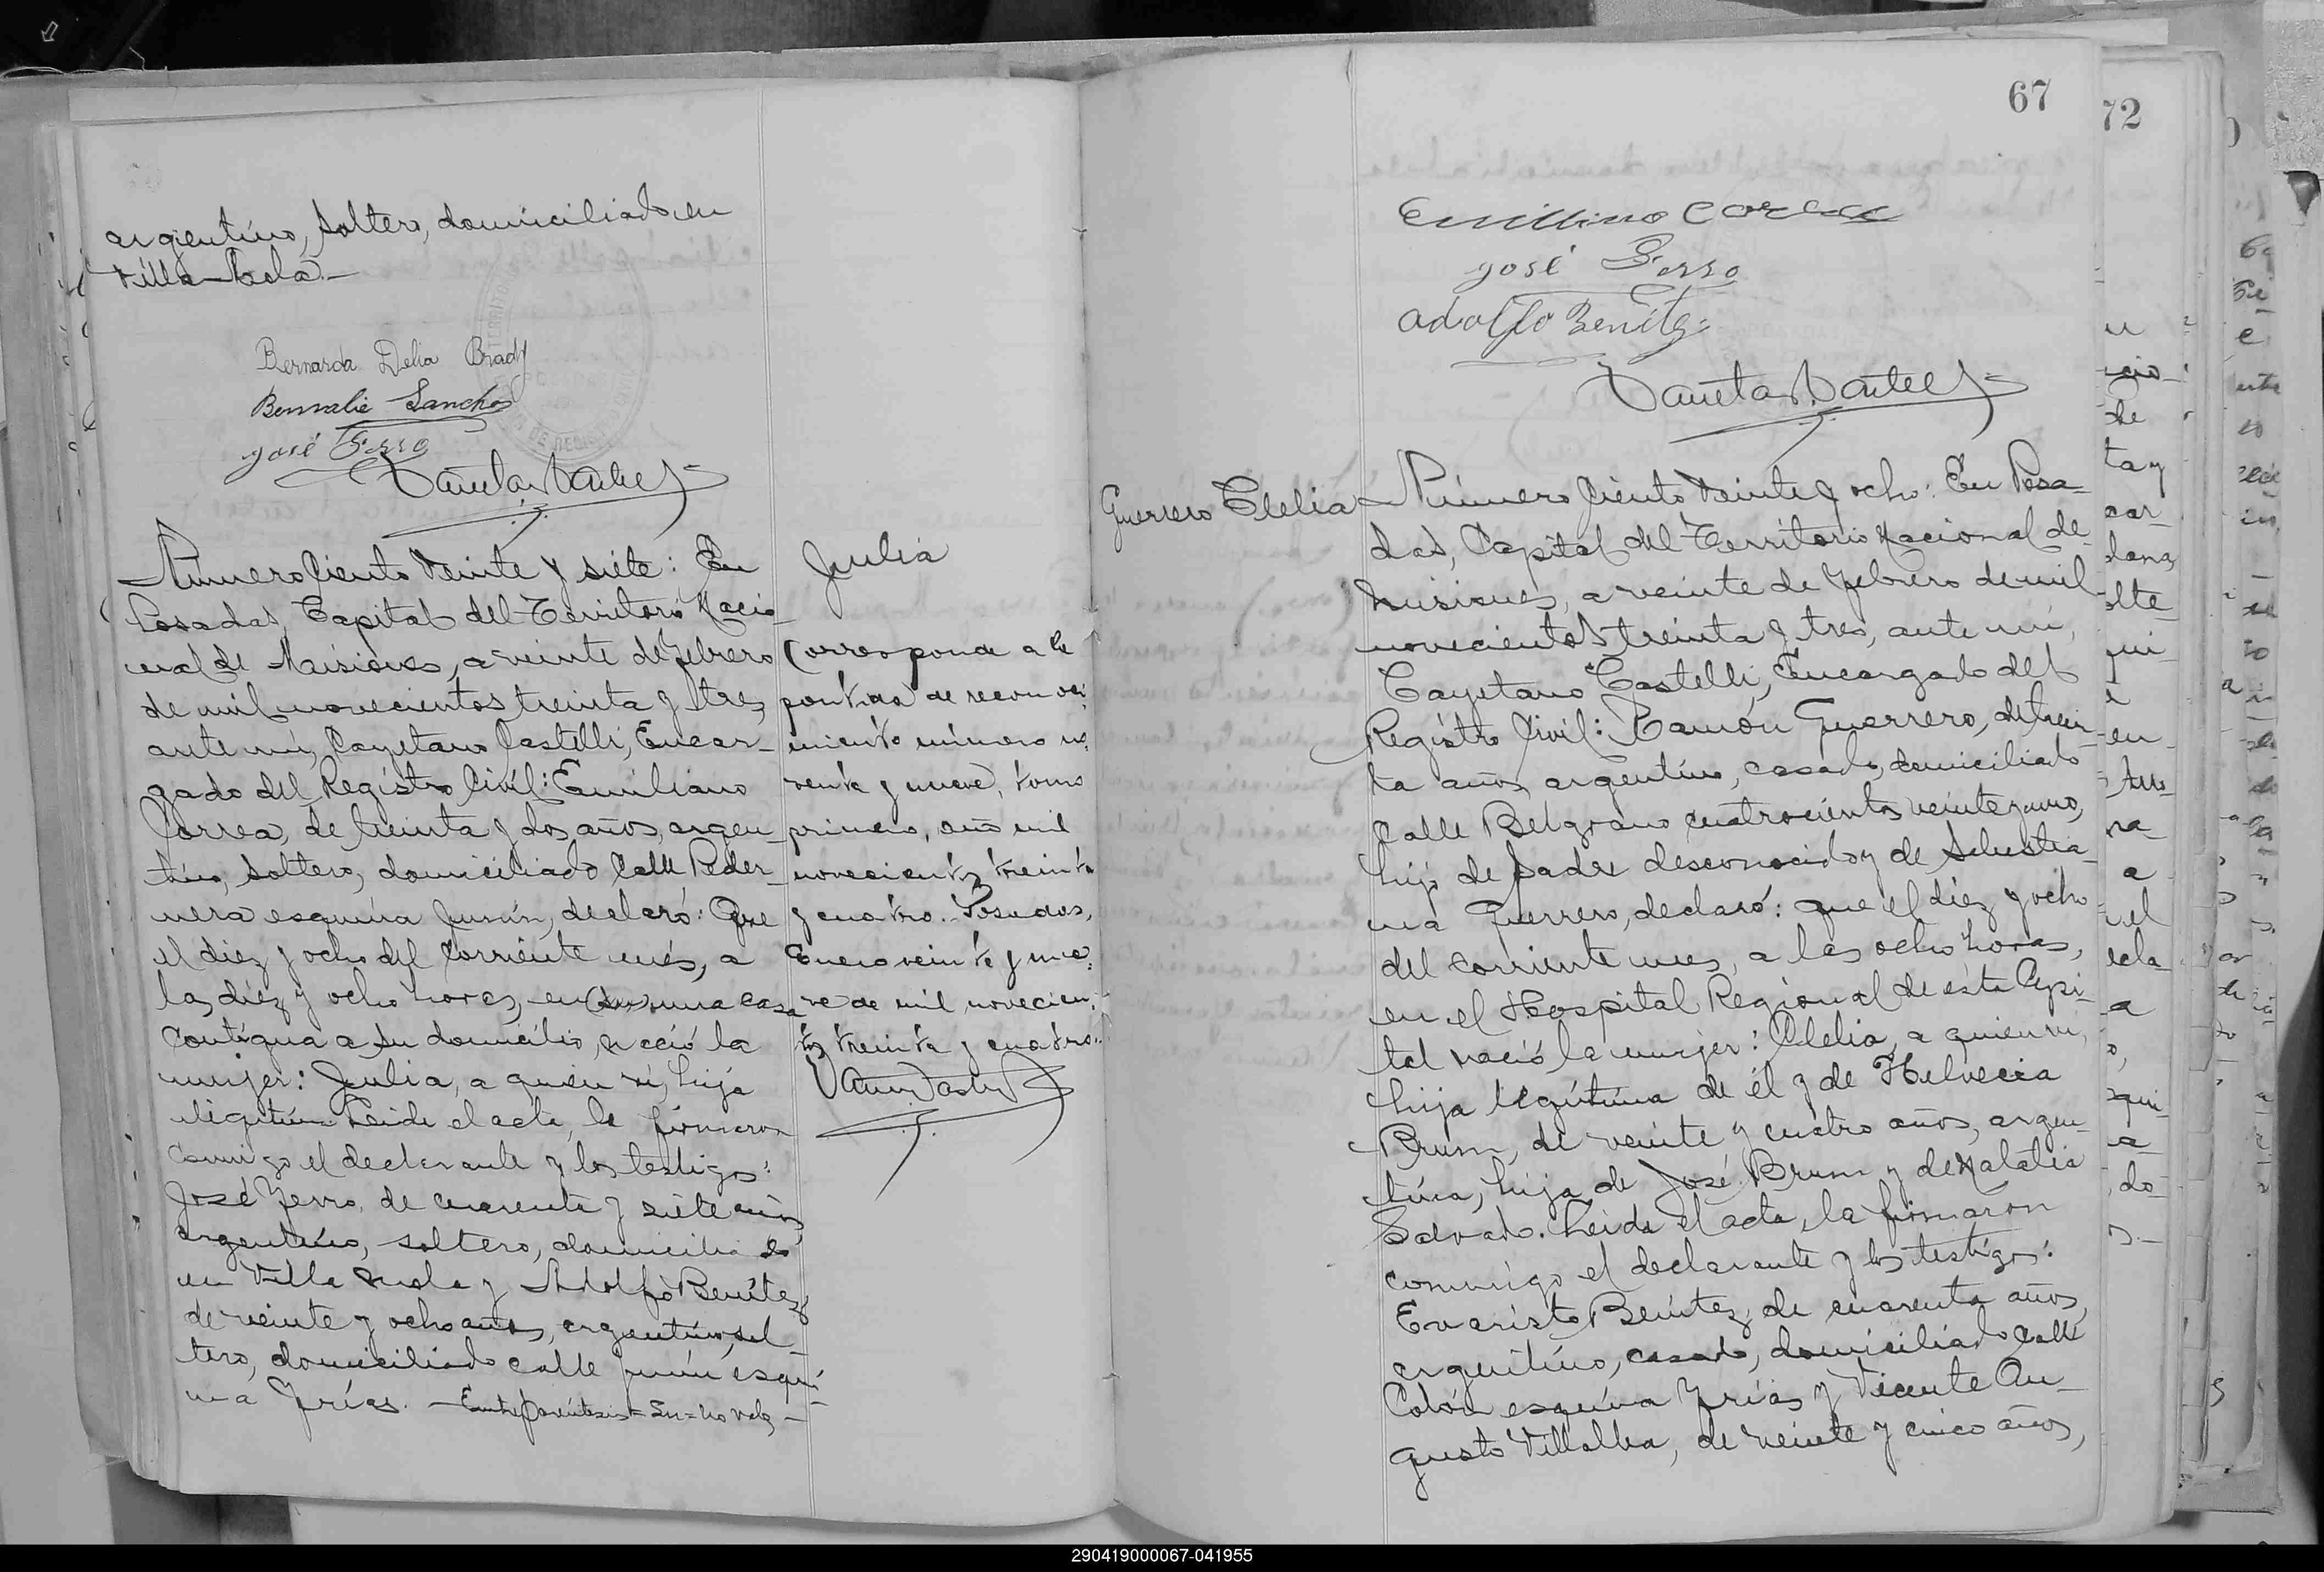 argentino, soltero, domiciliado en
Villa
Bernarda Delia Brady
Sancho
José Ferro
Número ciento veinte y siete: En
Posadas, Capital del Territorio Nacio-
nal de Misiones, a veinte de febrero
de mil novecientos treinta y tres,
ante mí, Cayetano Castelli, Encar-
gado del Registro Civil: Emiliano
Correa, de treinta y dos años, argen-
tino, soltero, domiciliado calle Peder-
nera esquina Junín, declaró: Que
el diez y ocho del corriente més, a
las diez y ocho horas, en (su) una casa
contigua a su domicilio, nació la
mujer: Julia, a quien ví, hija
ilegítima Leida el acta, la firmaron
conmigo el declarante y los testigos:
José Ferro, de cuarenta y siete años,
argentino, soltero, domiciliado
en Villa y Adolfo Benítez,
de veinte y ocho años, argentino, sol-
tero, domiciliado calle Junín esqui-
na Frías. - Entre paréntesis = su = no vale, -
Julia
Corresponde a la
partida de reconoci-
miento número no-
venta y nueve, tomo
primero, año mil
novecientos treinta
y cuatro. Posadas,
Enero veinte y nue-
ve de mil novecien-
tos treinta y cuatro.
67
72
Emiliano Correa
José Ferro
Adolfo Benítez
Guerrero Clelia
Número ciento veinte y ocho: En Posa-
das, Capital del Territorio Nacional de
Misiones, a veinte de febrero de mil
novecientos treinta y tres, ante mí,
Cayetano Castelli, Encargado del
Registro Civil: Ramón Guerrero, de trein-
ta años, argentino, casado, domiciliado
calle Belgrano cuatrocientos veinte y uno,
hijo de padre desconocido y de Sebastia-
na Guerrero, declaró: que el diez y ocho
del corriente mes, a las ocho horas,
en el Hospital Regional de ésta Capi-
tal nació la mujer: Clelia, a quien ví,
hija legítima de él y de Helvecia
Brum, de veinte y cuatro años, argen-
tina, hija de José Brum y de Natalia
Salvado. Leida el acta, la firmaron
conmigo el declarante y los testigos:
Evaristo Benítez, de cuarenta años,
argentino, casado, domiciliado calle
Colón esquina Frías y Vicente Au-
gusto Villalba, de veinte y cinco años,
290419000067-041955